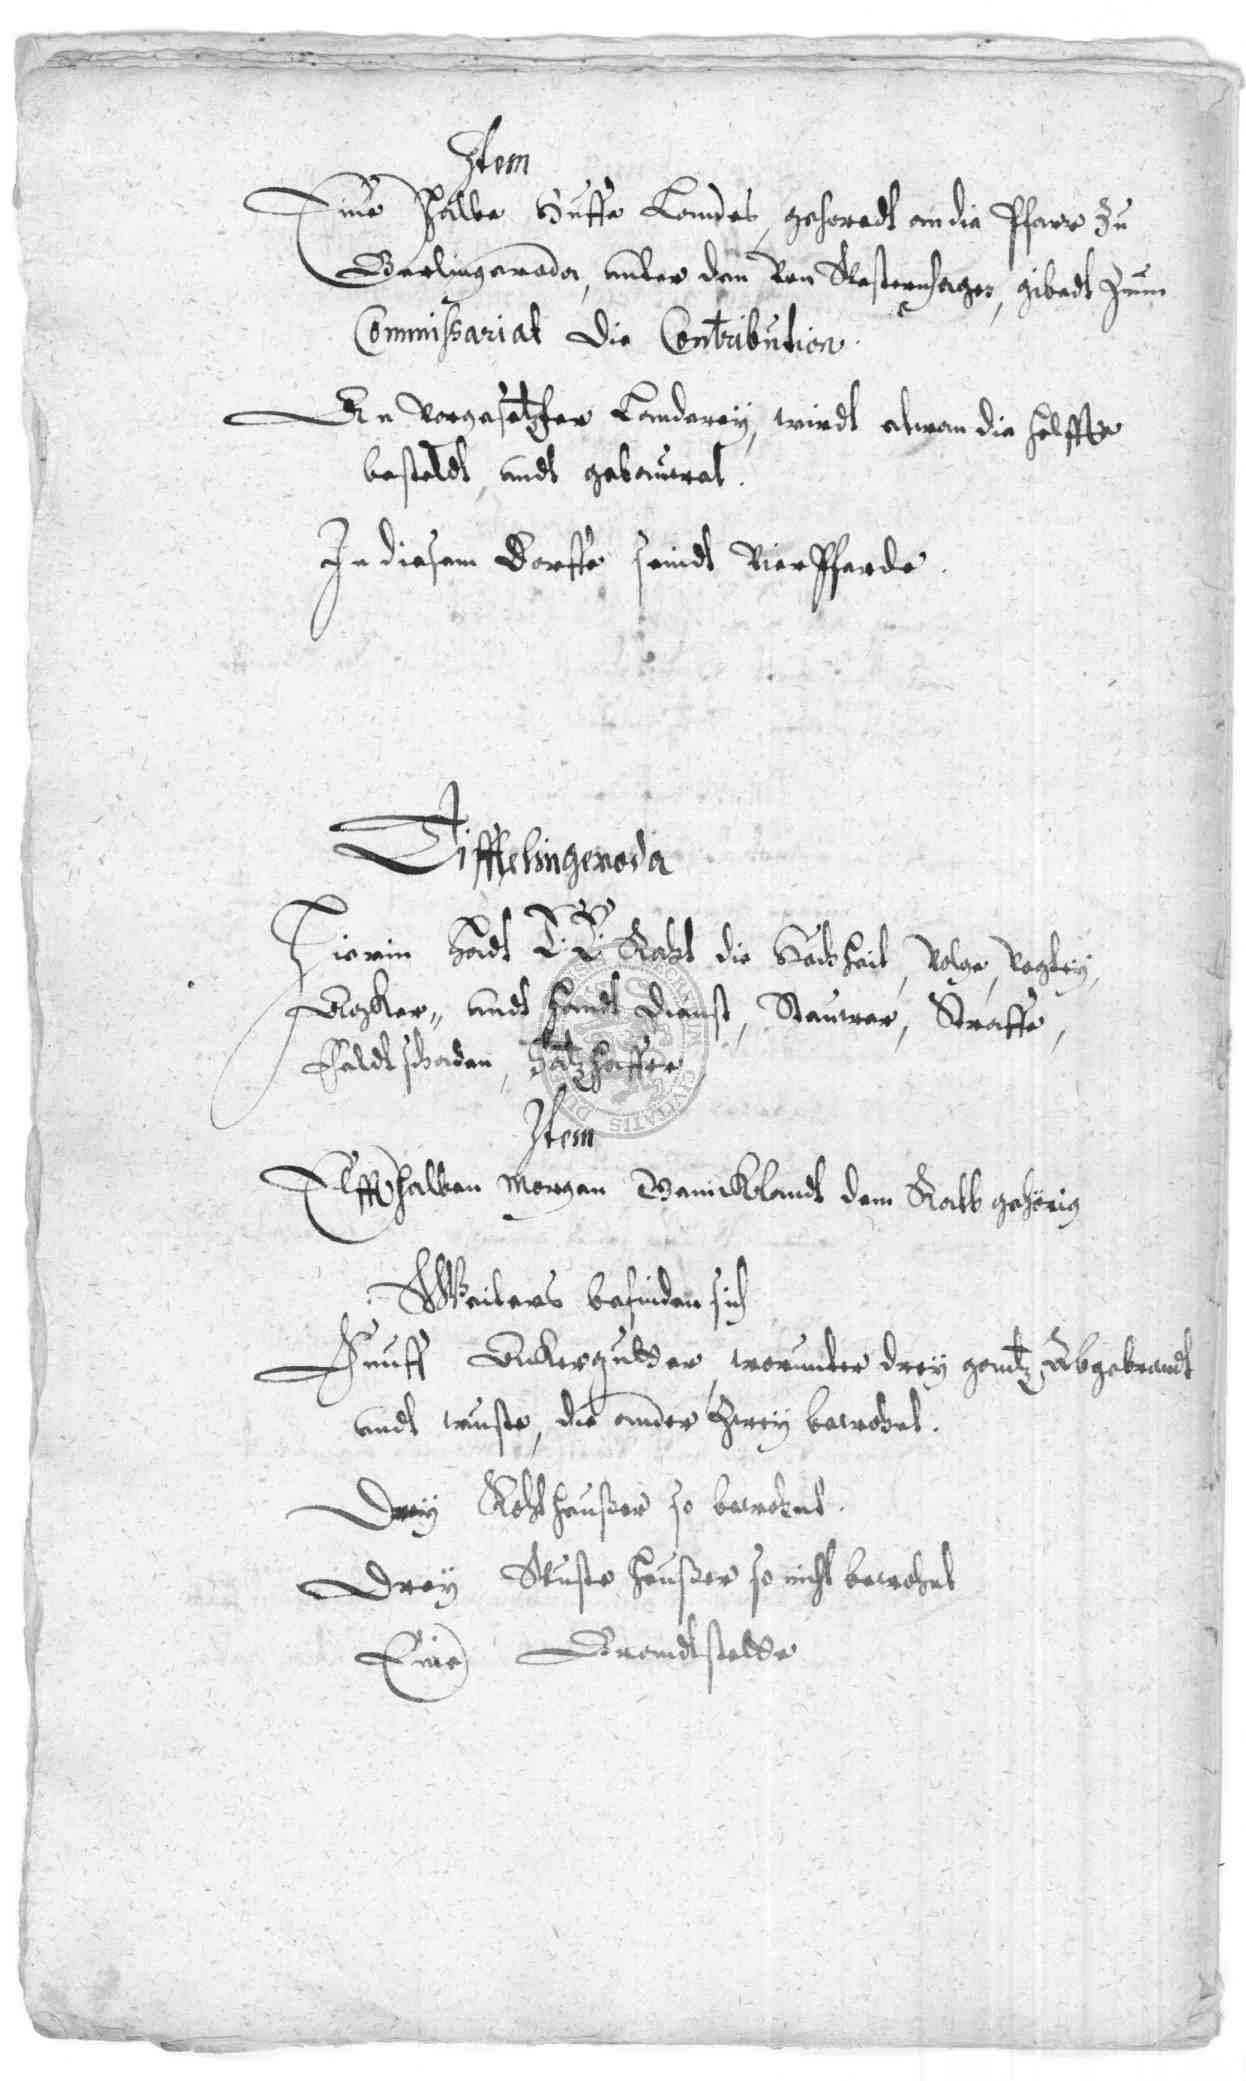 Item
Eine Halbe Huffe Landes, gehoredt an die Pfarr zu
Gerlingeroda, unter den von Westernhagen, gibedt zum
Commissariat die Contribution.
An vorgesetzter Landerey, wirdt etwan die helffte
besteldt, undt gebauwet.
In diesem Dorffe seindt Vier Pferde.
Tifftelingeroda
Hierin hadt E. E. Raht die Hocheit, Volge, Vogtey,
Acker,, undt handt dienst, Steuwer, Straffe,
Feldtschaden, Schatzhaffer
Item
Elfftehalben Morgen Wenicklandt dem Rath gehörig
Weiters befinden sich
Funff Ackergutter, worunter drey gantz Abgebrandt
undt wuste, die ander Zwey bewohnt.
Drey Kohthaußer so bewohnt.
Drey Wuste heußer so nicht bewohnt
Eine Brandtstette
CIVITATIS